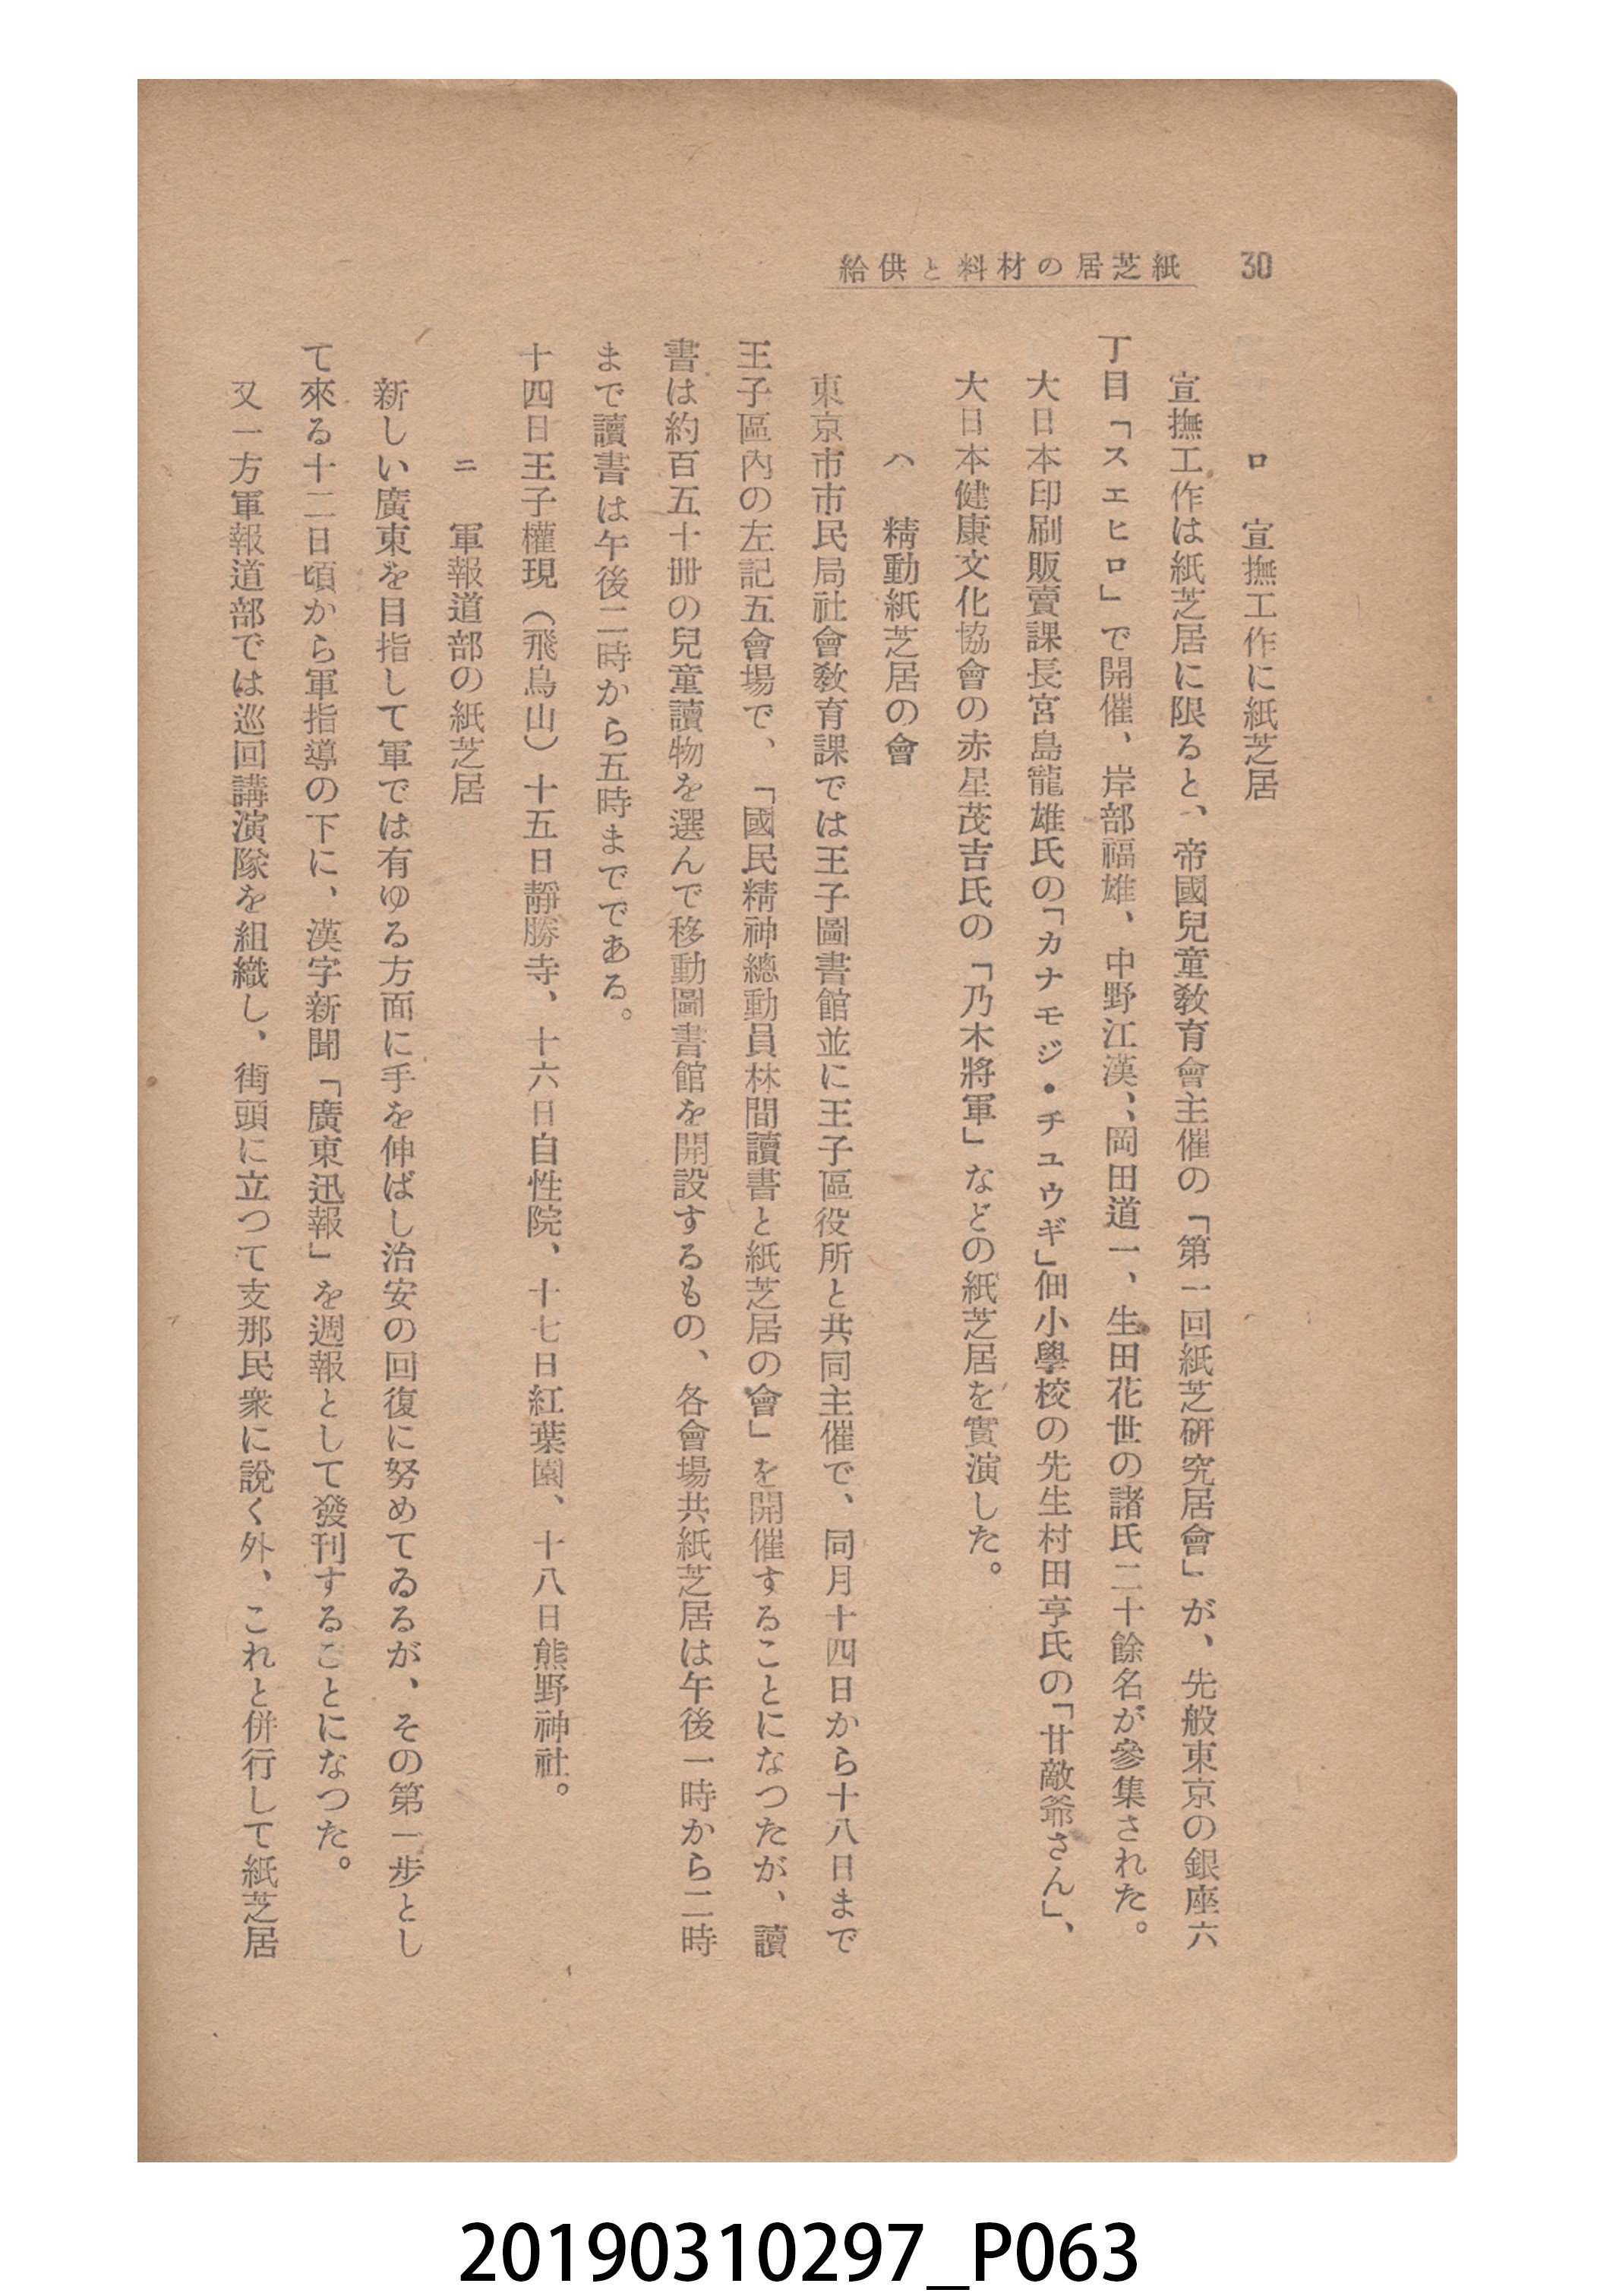 30
給供と料材の居芝紙
ロ　宣撫工作に紙芝居
宣撫工作は紙芝居に限ると、帝國兒童敎育會主催の「第一回紙芝硏究居會」が、先般東京の銀座六
丁目「スエヒロ」で開催、岸部福雄、中野江漢、、岡田道一、生田花世の諸氏二十餘名が參集された。
大日本印刷販賣課長宮島龍雄氏の「カナモジ・チュウギ」佃小學校の先生村田亨氏の「甘敵爺さん」、
大日本健康文化協會の赤星茂吉氏の「乃木將軍」などの紙芝居を實演した。
ハ　精動紙芝居の會
東京市市民局社會敎育課では王子圖書館並に王子區役所と共同主催で、同月十四日から十八日まで
王子區內の左記五會場で、「國民精神總動員林間讀書と紙芝居の會」を開催することになつたが、讀
書は約百五十冊の兒童讀物を選んで移動圖書館を開設するもの、各會場共紙芝居は午後一時から二時
まで讀書は午後二時から五時までである。
十四日王子權現（飛鳥山）十五日靜勝寺、十六日自性院、十七日紅葉園、十八日熊野神社。
ニ　軍報道部の紙芝居
新しい廣東を目指して軍では有ゆる方面に手を伸ばし治安の回復に努めてゐるが、その第一步とし
て來る十二日頃から軍指導の下に、漢字新聞「廣東迅報」を週報として發刊することになつた。
又一方軍報道部では巡回講演隊を組織し、街頭に立つて支那民衆に說く外、これと併行して紙芝居
20190310297_P063